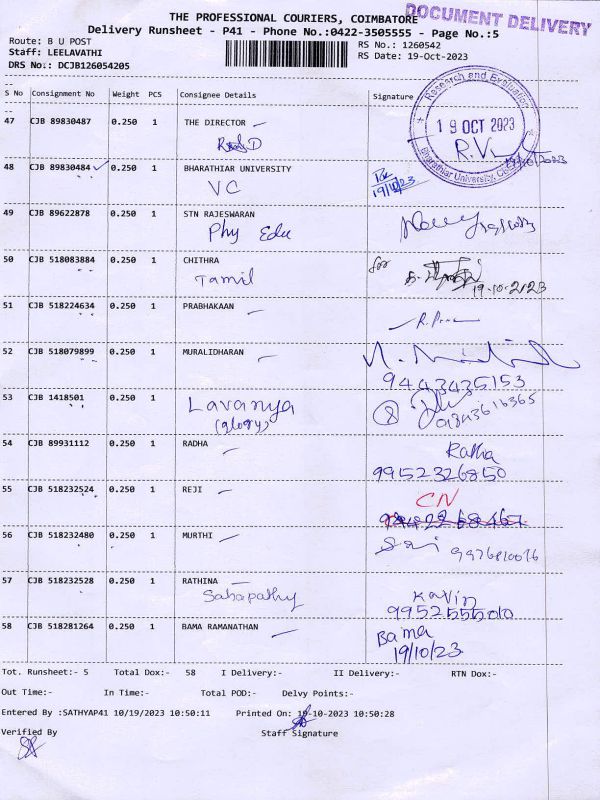 THE PROFESSIONAL COURIERS, COIMBATORE
DOCUMENT DELIVERY
Delivery Runsheet - P41 - Phone No.:0422-3505555 - Page No.:5
Route: B U POST
RS No.: 1260542
Staff: LEELAVATHI
RS Date: 19-Oct-2023
DRS No.: DCJB126054205
S No Consignment No Weight PCS Consignee Details Signature
Research and Evaluation
19 OCT 2023
Bharathiar University
47 CJB 89830487 0.250 1 THE DIRECTOR
R&D
48 CJB 89830484 0.250 1 BHARATHIAR UNIVERSITY
VC 19/10/23
49 CJB 89622878 0.250 1 STN RAJESWARAN
Phy Edu
50 CJB 518083884 0.250 1 CHITHRA for
Tamil 19-10-2023
51 CJB 518224634 0.250 1 PRABHAKAAN
52 CJB 518079899 0.250 1 MURALIDHARAN
9443435153
53 CJB 1418501 0.250 1 Lavanya
(glory)
54 CJB 89931112 0.250 1 RADHA Radha
9952326850
55 CJB 518232524 0.250 1 REJI CN
56 CJB 518232480 0.250 1 MURTHI
57 CJB 518232528 0.250 1 RATHINA
Sabapathy Kavin
58 CJB 518281264 0.250 1 BAMA RAMANATHAN Bama
19/10/23
Tot. Runsheet:- 5 Total Dox:- 58 I Delivery:- II Delivery:- RTN Dox:-
Out Time:- In Time:- Total POD:- Delvy Points:-
Entered By :SATHYAP41 10/19/2023 10:50:11 Printed On: 19-10-2023 10:50:28
Verified By Staff Signature